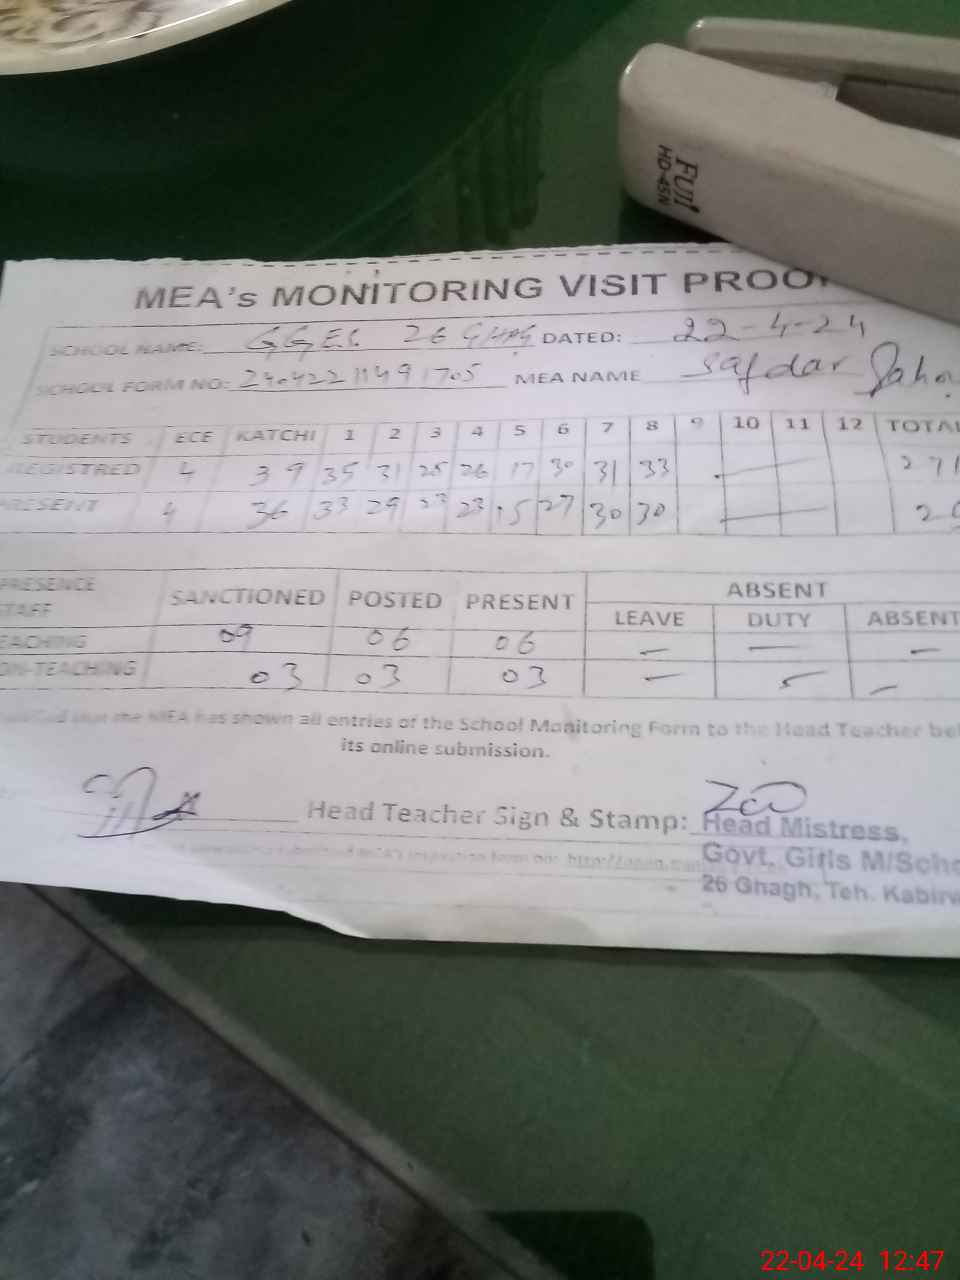 FUJI
HD-45N
MEA's MONITORING VISIT PROO
SCHOOL NAME: 26 DATED: 22-4-24
SCHOOL FORM NO: MEA NAME Safdar
STUDENTS ECE KATCHI 1 2 3 4 5 6 7 8 9 10 11 12 TOTAL
REGISTRED 4 39 35 31 25 26 17 30 31 33 271
PRESENT 4 36 33 29 23 23 15 27 30 30
PRESENCE STAFF SANCTIONED POSTED PRESENT ABSENT
LEAVE DUTY ABSENT
TEACHING 09 06 06 — — —
NON-TEACHING 03 03 03 —
that the MEA has shown all entries of the School Monitoring Form to the Head Teacher
its online submission.
Head Teacher Sign & Stamp: Head Mistress,
Govt. Girls M/Scho
26 Ghagh, Teh. Kabirw
22-04-24 12:47